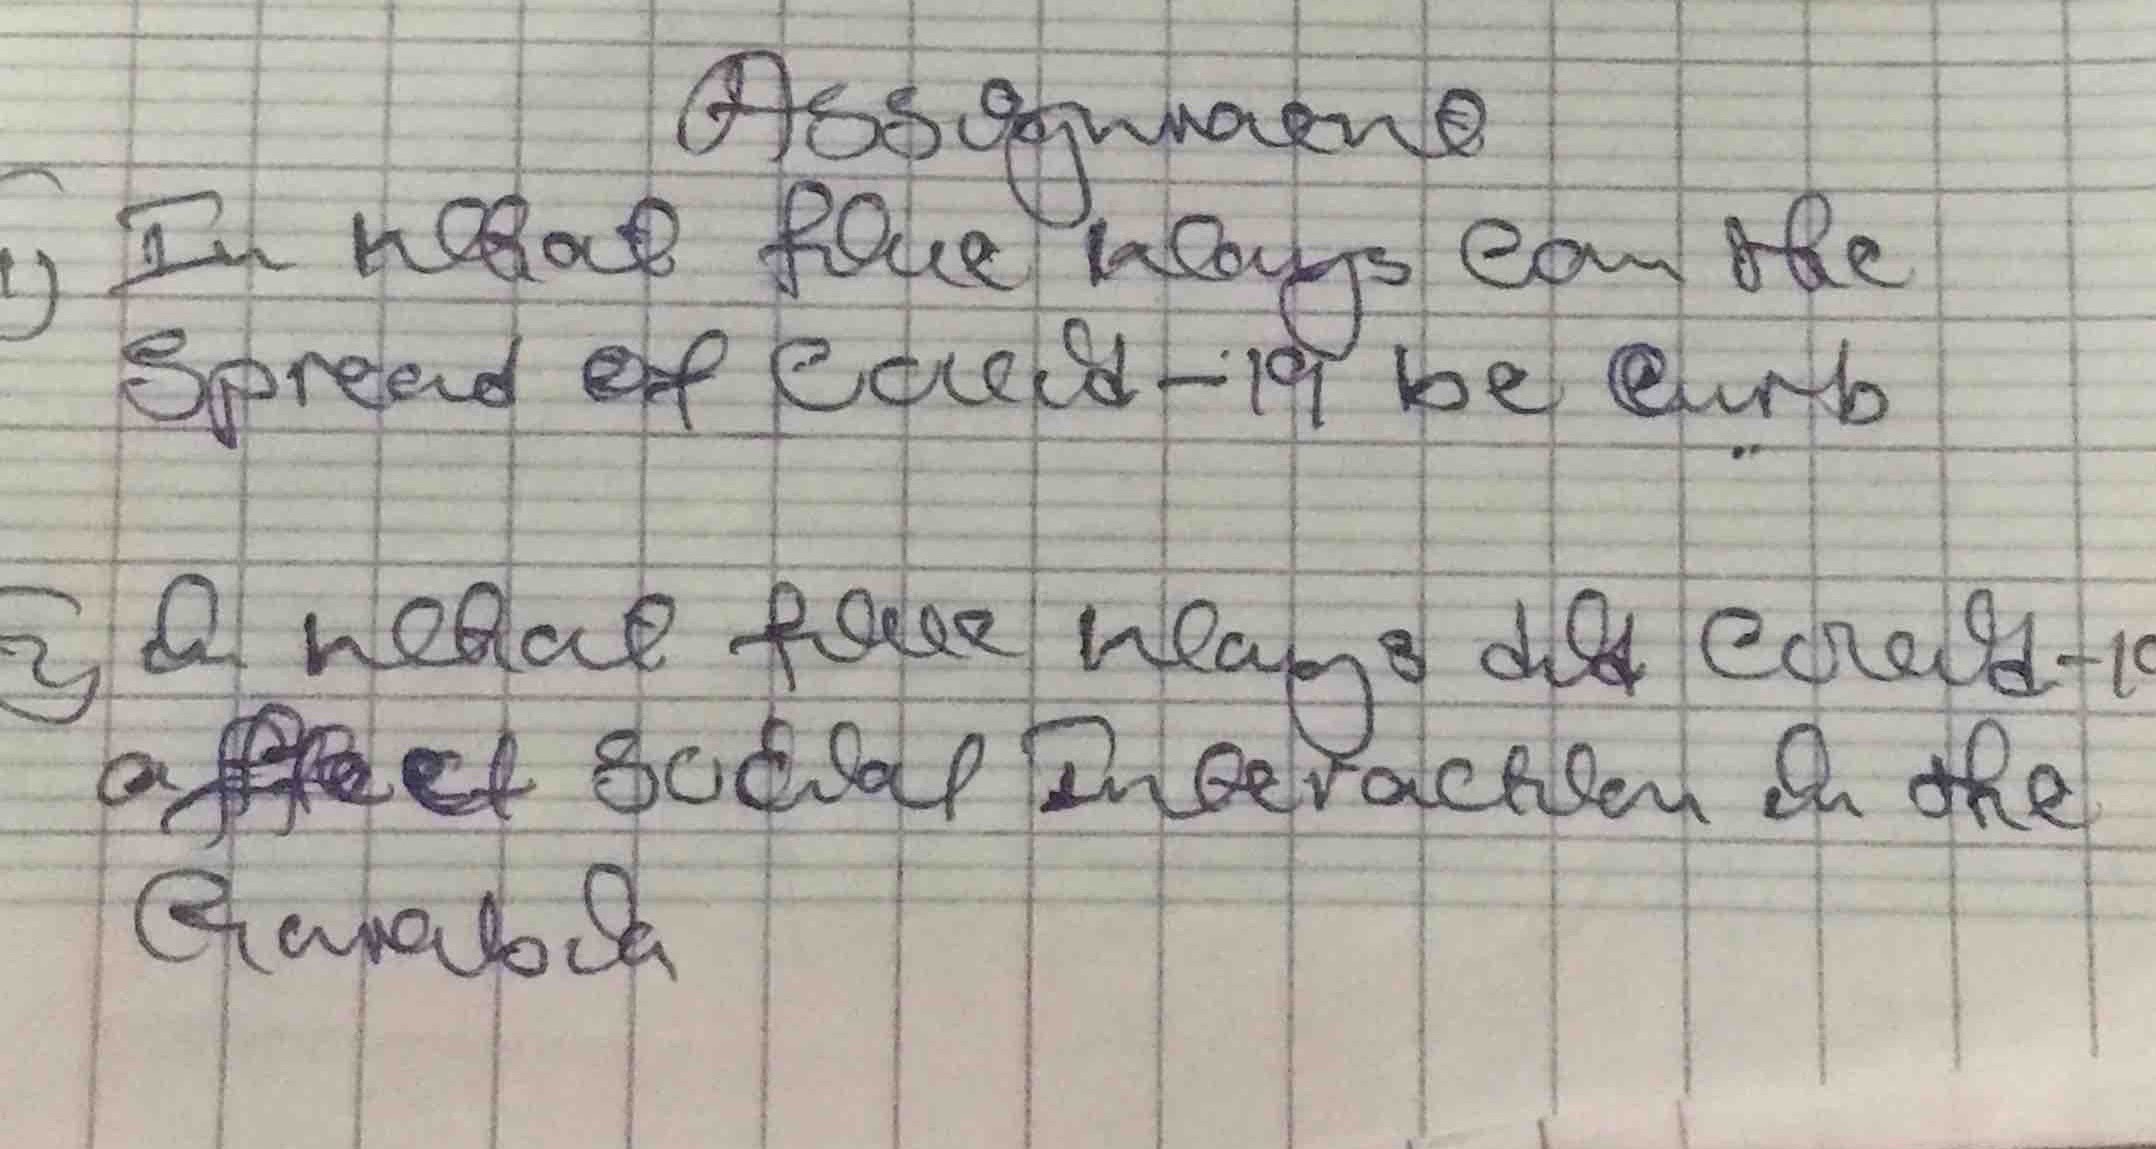 Assignment
1) In what five ways can the
Spread of Covid-19 be curb
2) In what five ways did Covid-19
affect social Interaction in the
Gambia